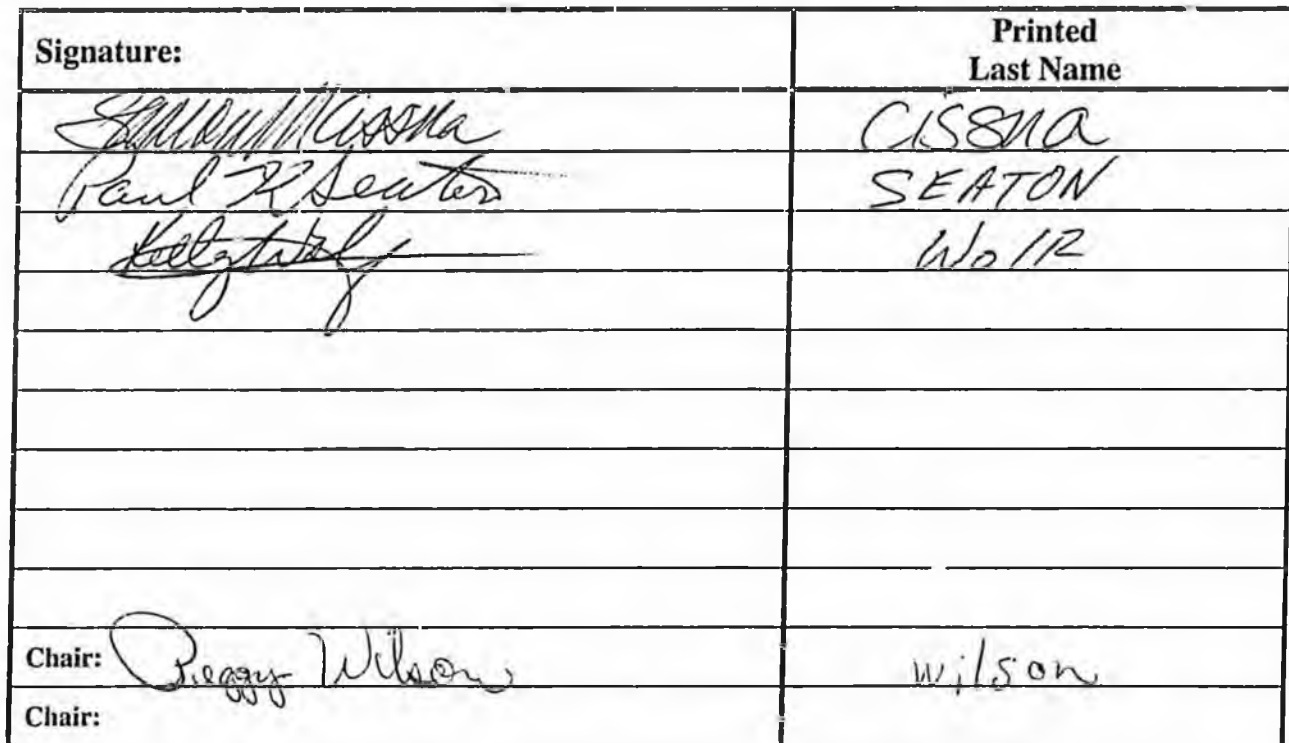 Signature:
Printed
Last Name
Cissna
CISSNA
Paul K Seaton
SEATON
Kelly
Chair: Peggy Wilson
Wilson
Chair: